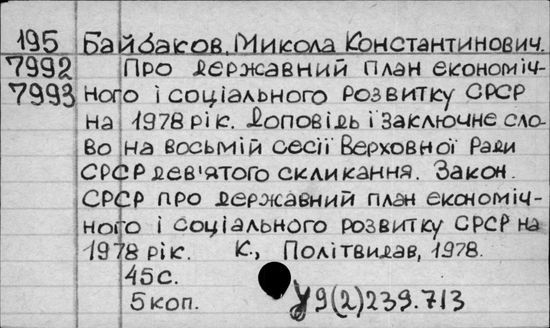 195 Байбаков, Микола Константинович.
7992 Про державний план економіч-
7993 ного і соціального розвитку СРСР
на 1978 рік. Доповідь і заключне сло-
во на восьмій сесії Верховної Ради
СРСР дев'ятого скликання. Закон
СРСР про державний план економіч-
ного і соціального розвитку СРСР на
1978 рік. К., Політвидав, 1978.
45с.
5 коп. У9(2)239.713